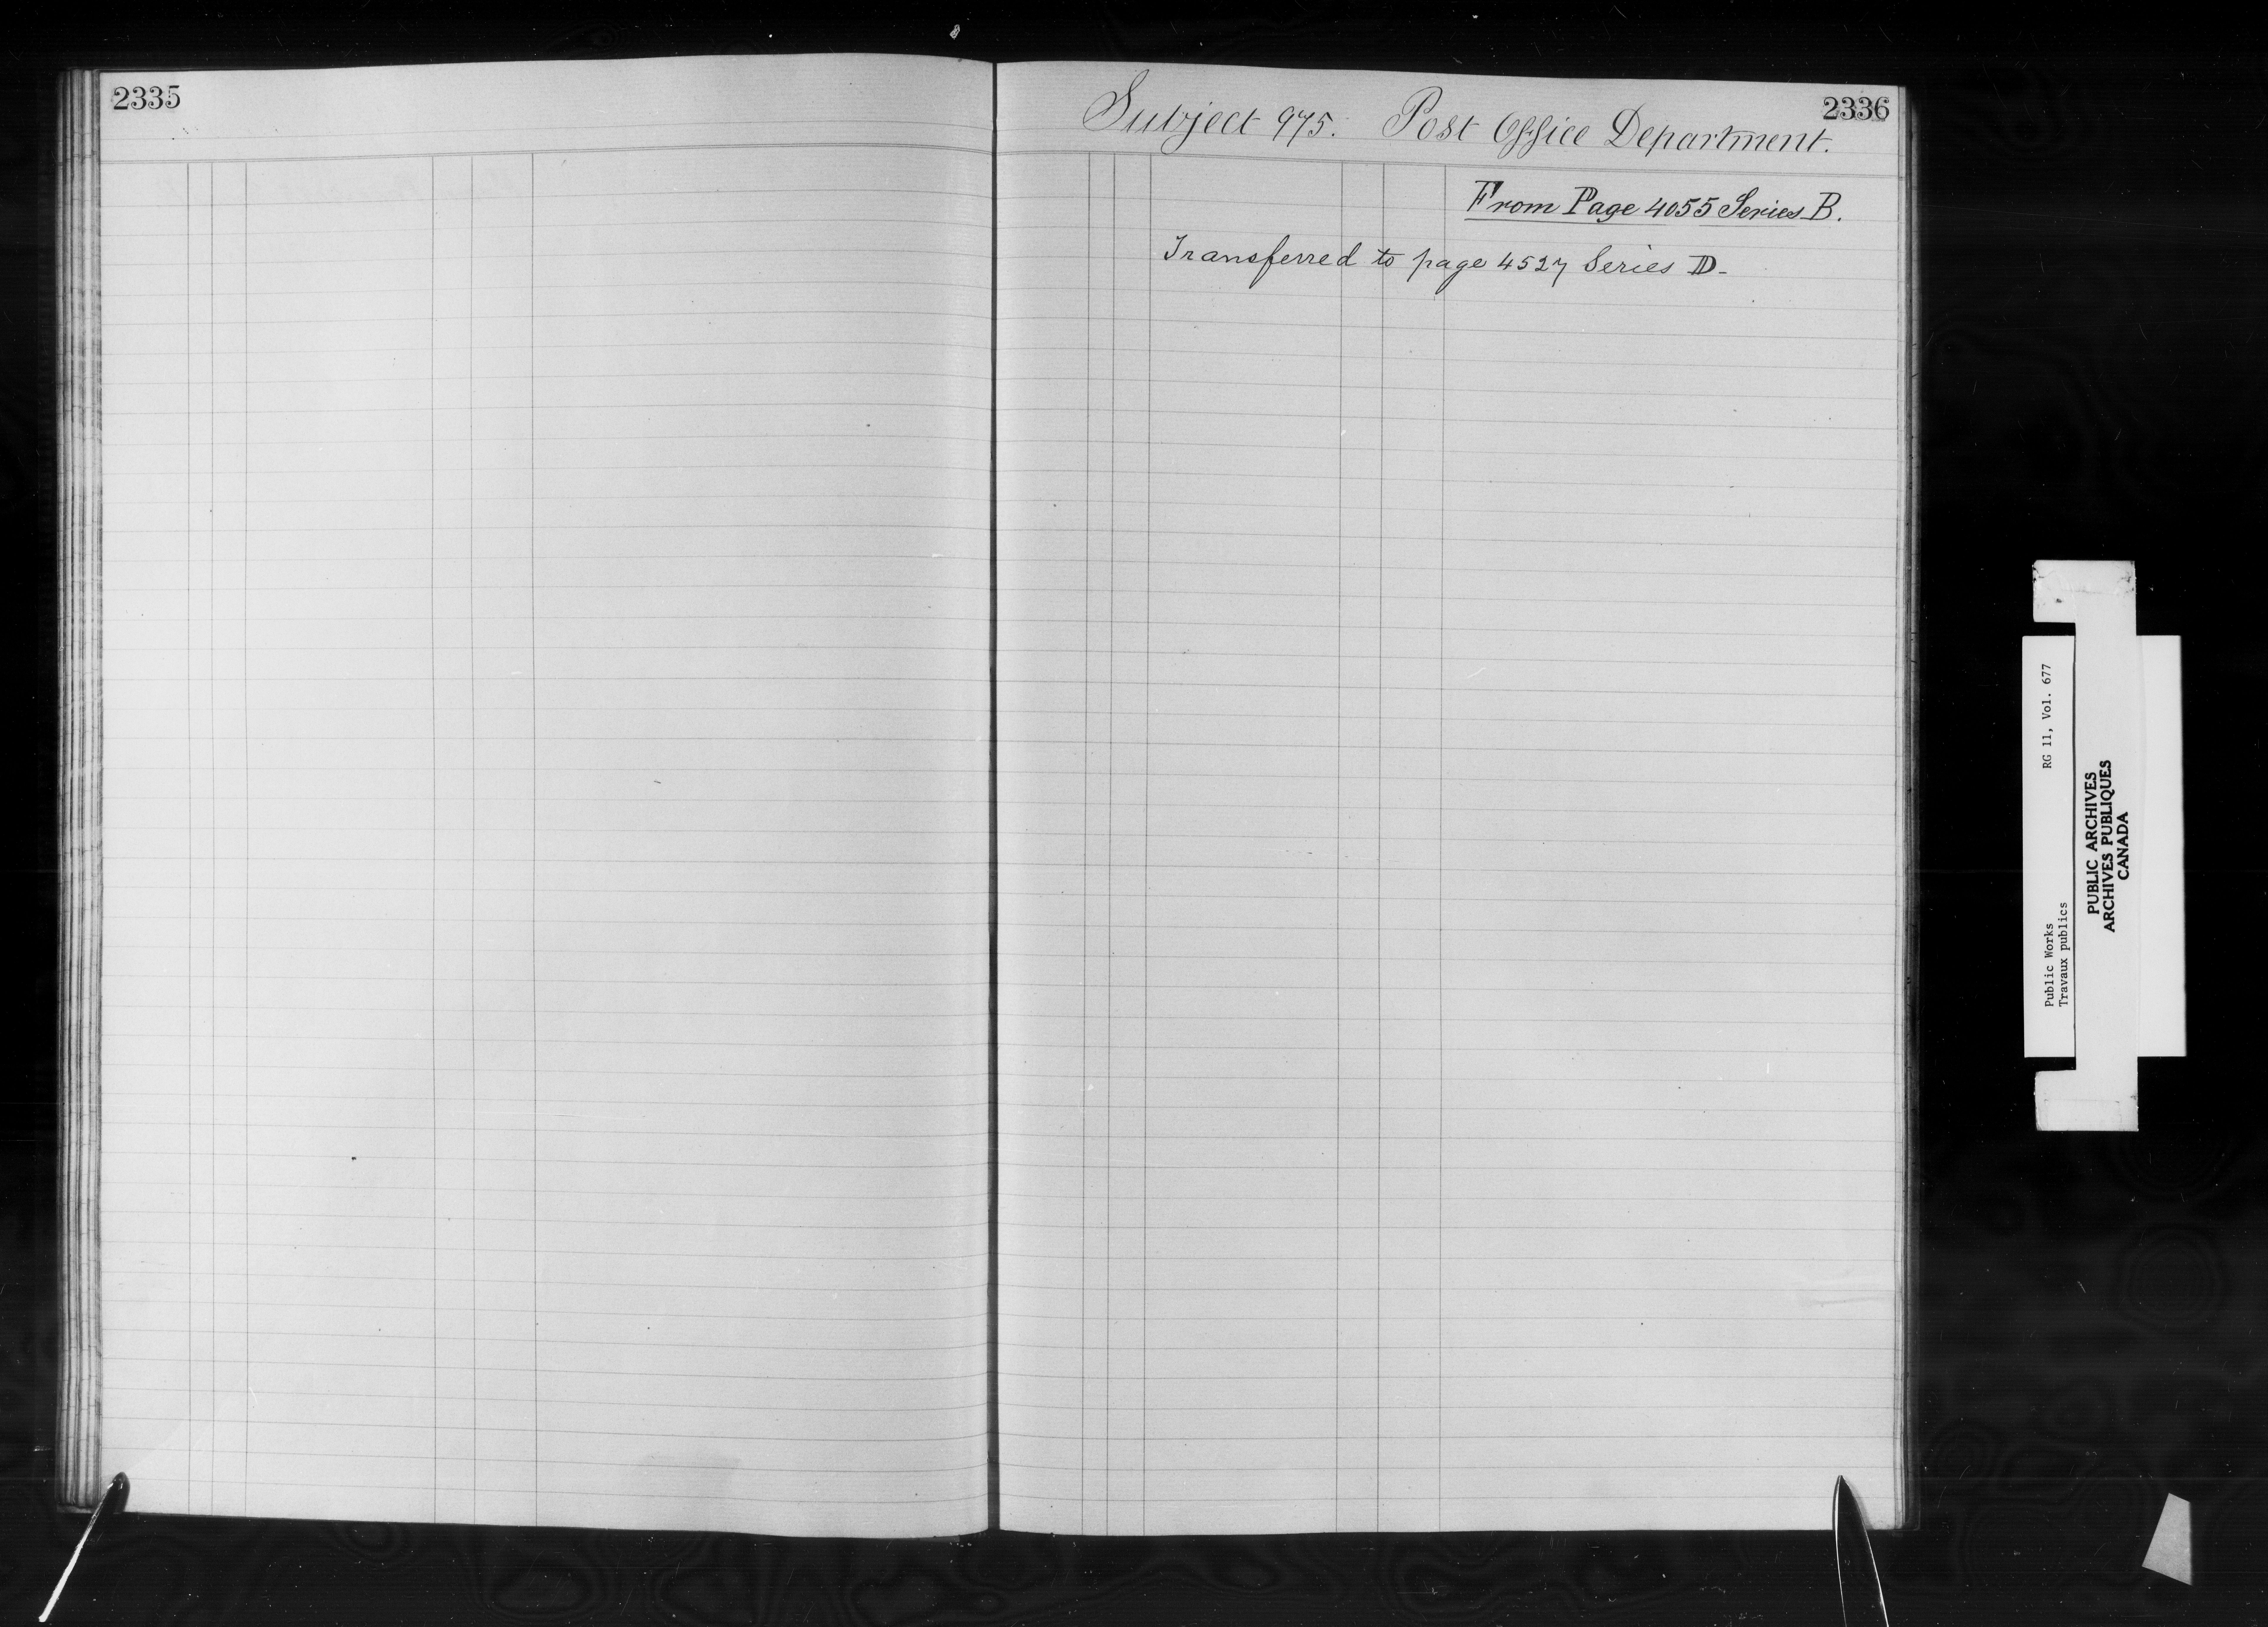 2335
2336
Subject 975. Post Office Department.
From Page 4055 Series B.
Transferred to page 4527 Series D.
Public Works
Travaux publics
RG 11, Vol. 677
PUBLIC ARCHIVES
ARCHIVES PUBLIQUES
CANADA